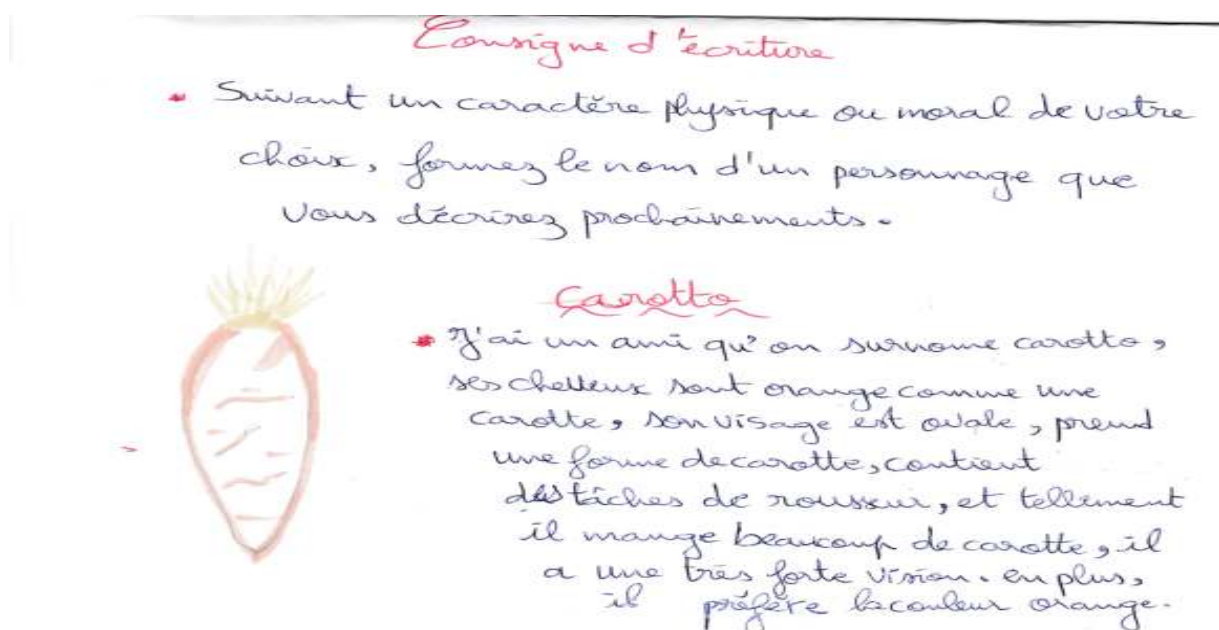 Consigne d'écriture
• Suivant un caractère physique ou moral de votre
choix, formez le nom d'un personnage que
vous décrirez prochainements.
Carotto
• J'ai un ami qu'on surnome carotto,
ses cheveux sont orange comme une
carotte, son visage est ovale, prend
une forme de carotte, contient
des tâches de rousseur, et tellement
il mange beaucoup de carotte, il
a une très forte vision. en plus,
il préfère la couleur orange.